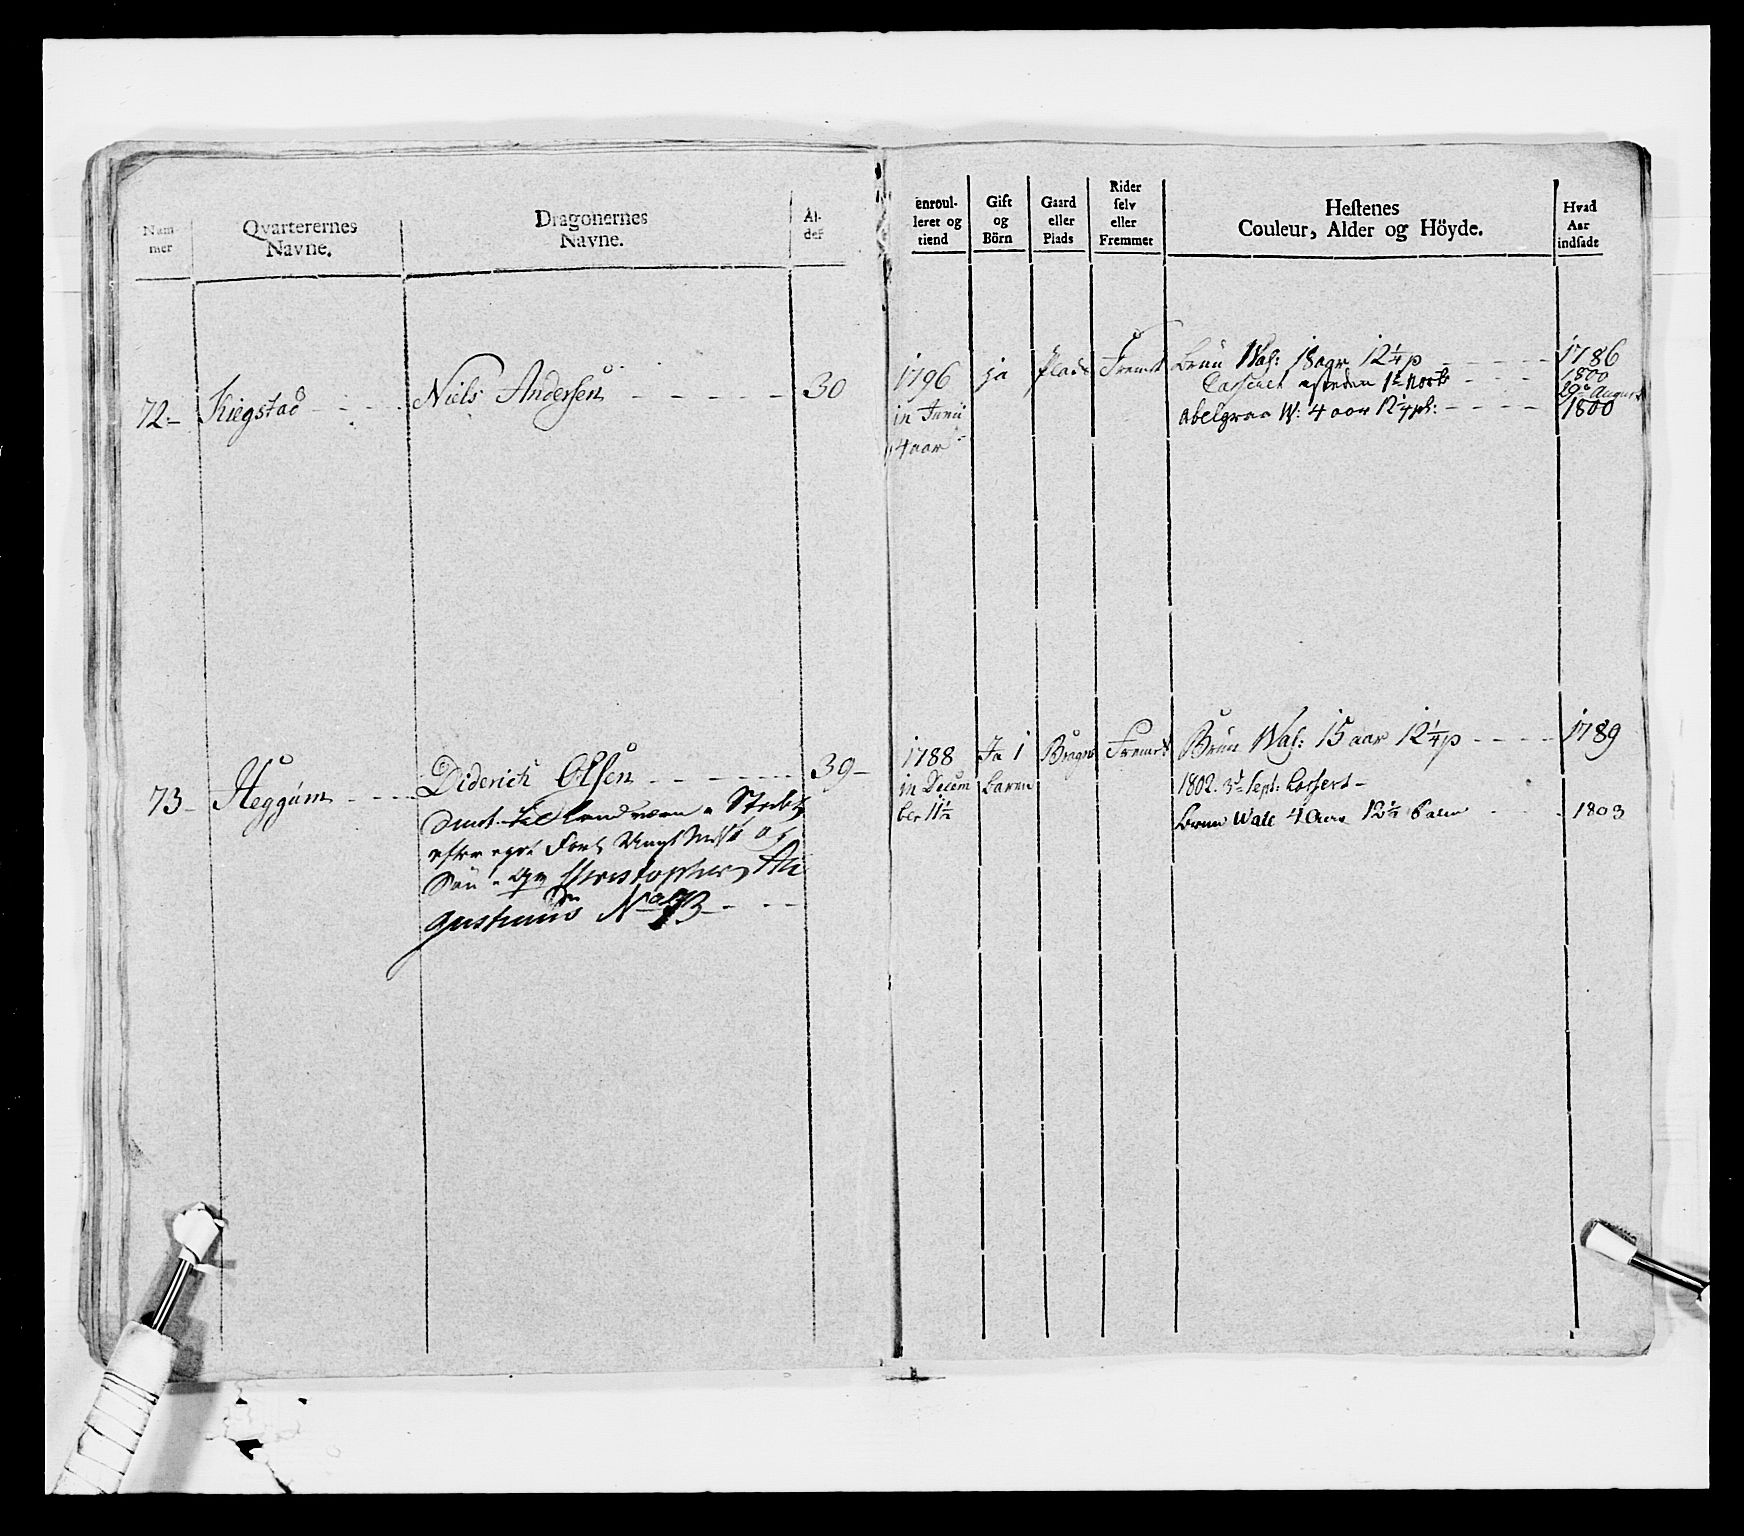 Nummer
Qvarterernes Navne.
Dragonernes Navne.
Alder
enroulleret og tiend
Gift og Börn
Gaard eller Plads
Rider selv eller Fremmet
Hestenes Couleur, Alder og Höyde.
Hvad Aar indsade
72- Kiegstad
Niels Andersen
30
1796
in Junii
4 aar
ja
Plads
Fremt
brun Wal: 18 aar 12¼ p
Casseret
abelgraa W: 4 aar 12¼ p:
1786
1800
29de August
1800
73- Heggum
Diderich Olsen
39-
til Landværn
Christopher
No 73
1788
in Decem
ber 11½
Ja 1
baren
Bragen
Fremt
Brun Wal: 15 aar 12¼ p
1802. 3d Sept: Cassert-
brun Wall 4 Aar 12½
1789
1803